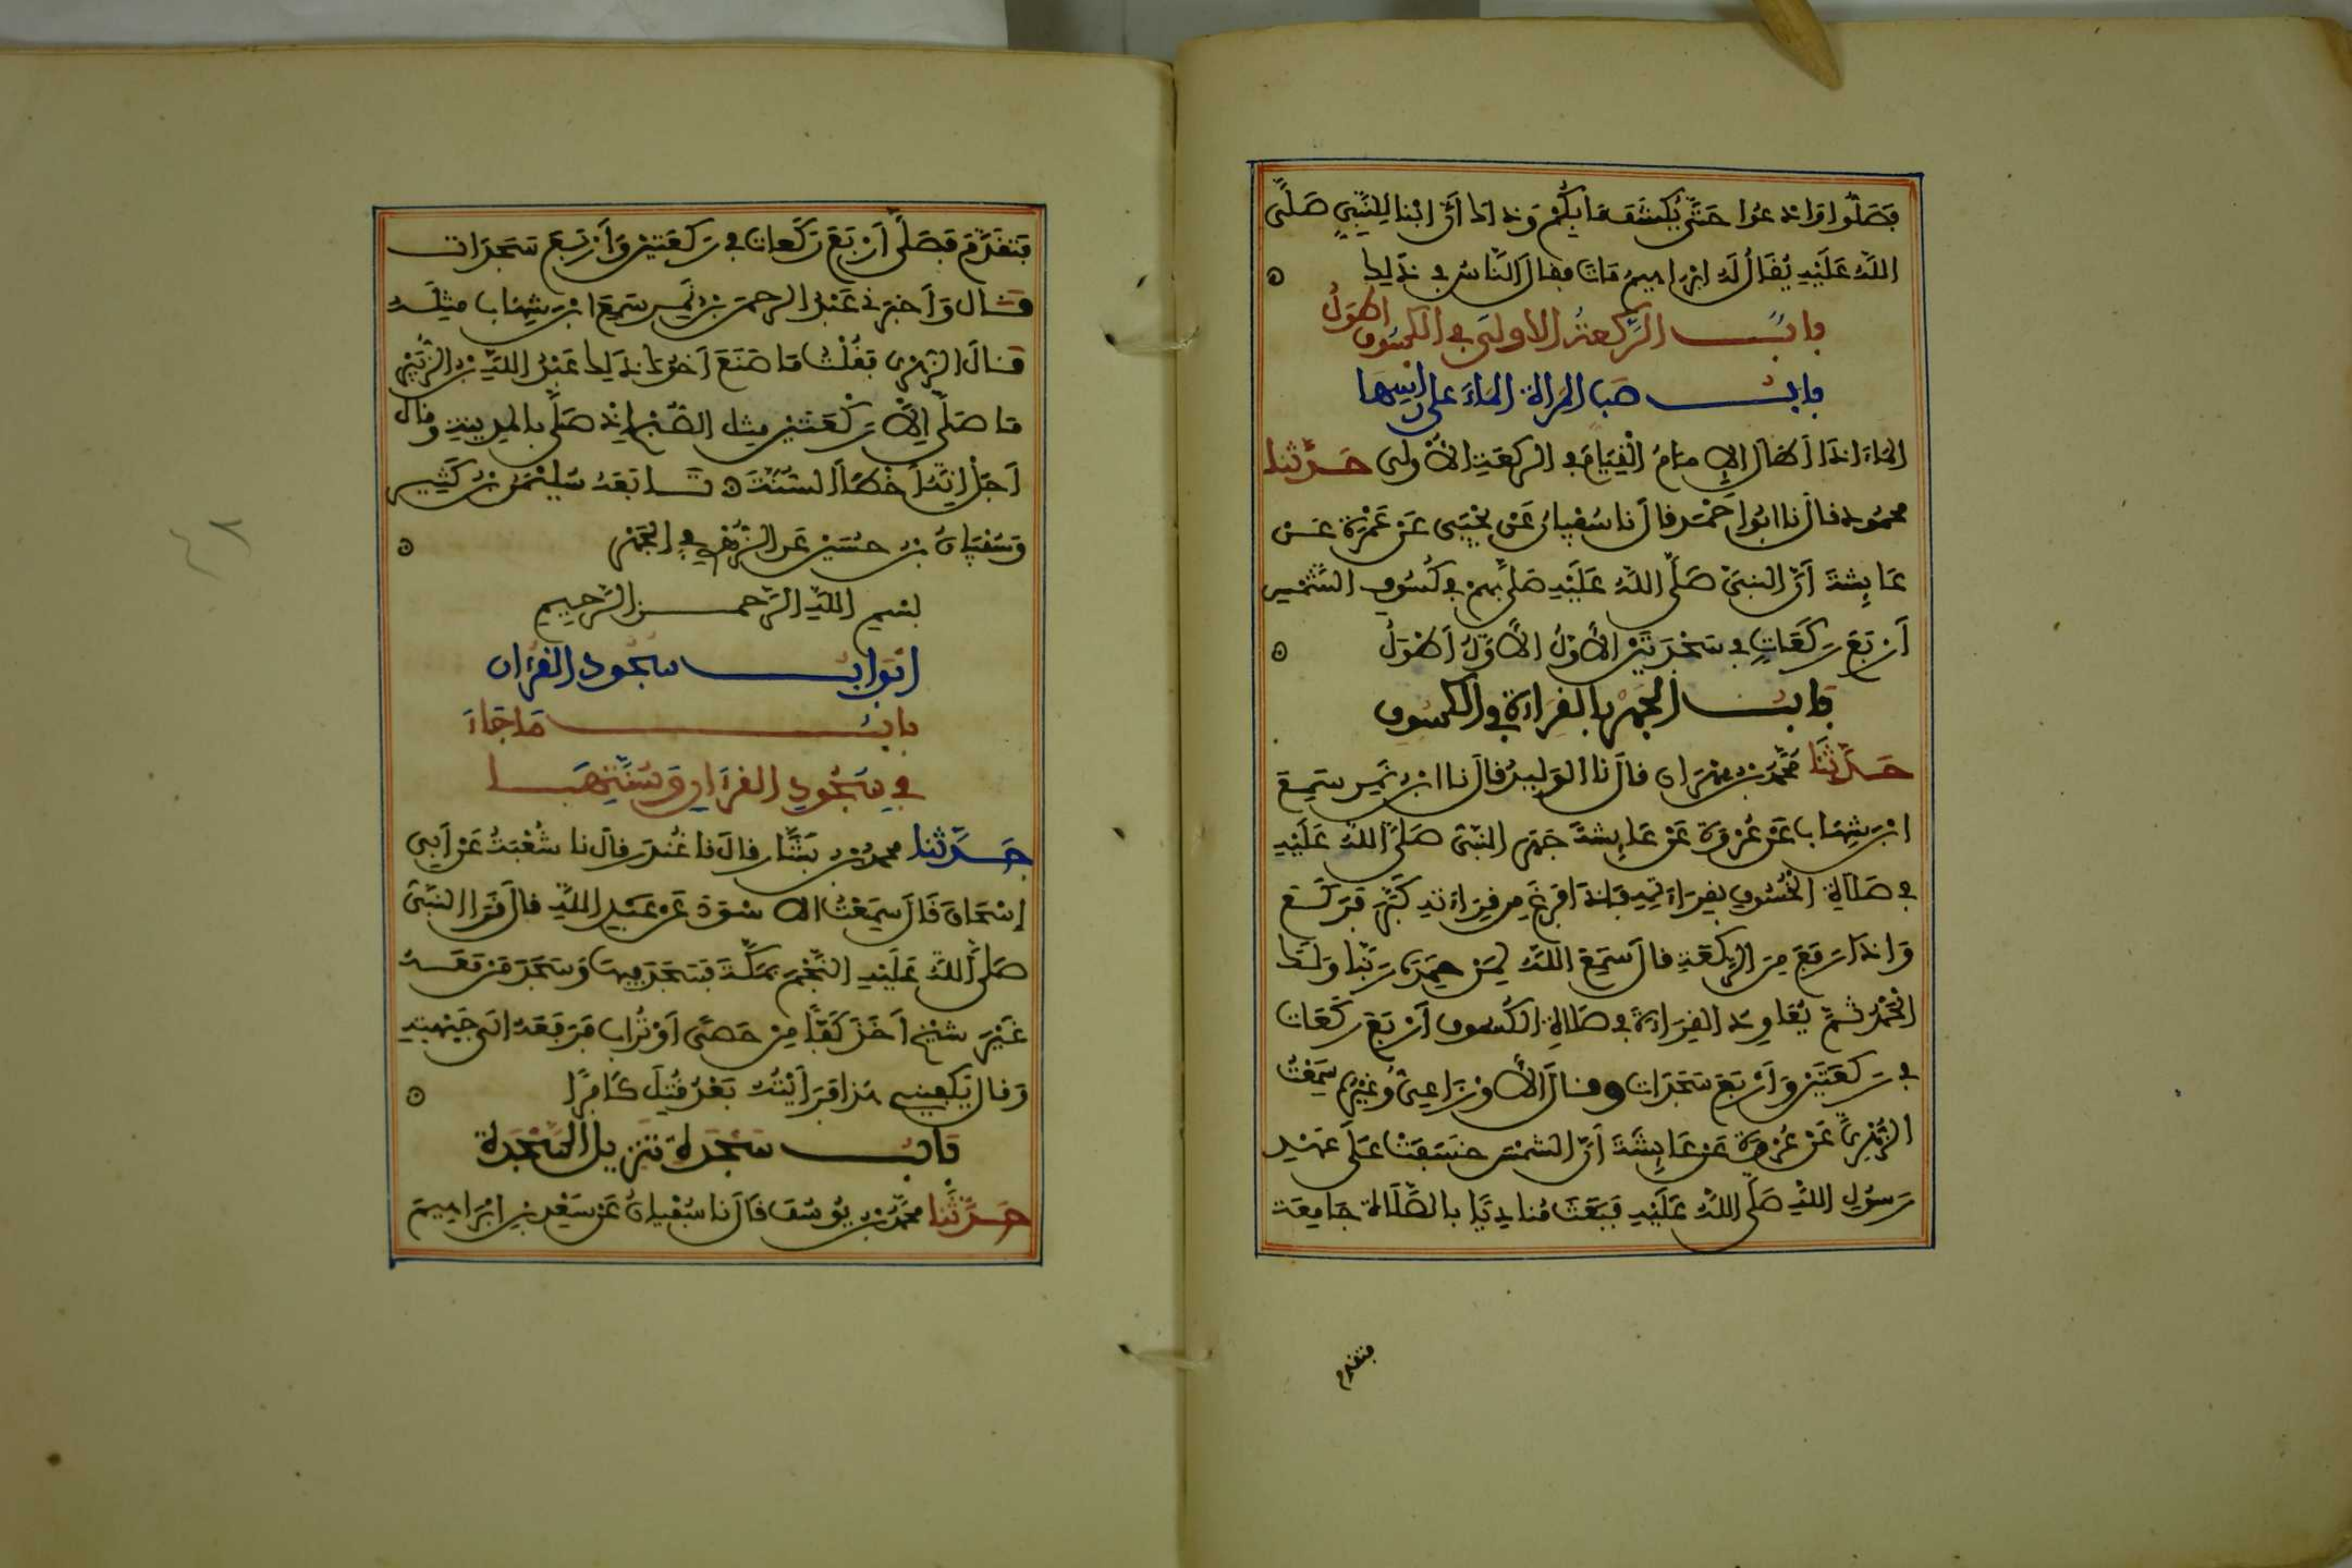 فَصَلُّوا وَادْعُوا حَتَّى يُكْشَفَ مَا بِكُمْ وَذَاكَ أَنَّ ابْنًا لِلنَّبِيِّ صَلَّى
اللَّهُ عَلَيْهِ يُقَالُ لَهُ إِبْرَاهِيمُ مَاتَ فقالَ النَّاسُ فِي ذَلِكَ
بابُ الرَّكعةُ الاولَى في الكسُوفِ اطْوَلُ
بابُ صَب المرأة المَاءَ على رَأسِهَا
المَاءَ إِذَا أَطَالَ الإِمَامُ الْقِيَامَ فِي الركعَةِ الأُولَى حَدَّثنا
محمُود قالَ نا ابُو أَحْمَد قالَ نا سُفْيانُ عَنْ يَحْيَى عَنْ عَمْرَةَ عَنْ
عَايِشَةَ أَنَّ النبيَّ صَلَّى اللَّهُ عَلَيْهِ صَلَّى بهِمْ فِي كُسُوفِ الشَّمْسِ
أَرْبَعَ رَكَعَاتٍ فِي سَجْدَتَيْنِ الأَوَّلُ الأَوَّلُ أَطْوَلُ
بَابُ الجَهْرِ بالقِرَاءَةِ في الكسُوفِ
حَدَّثَنَا مُحَمَّدُ بنُ مِهْرَان قالَ نا الوَلِيدُ قالَ نا ابنُ نَمِر سَمِعَ
ابْنَ شِهَابٍ عَنْ عُرْوَةَ عَنْ عَايِشَةَ جَهَرَ النَّبيُّ صَلَّى اللَّهُ عَلَيْهِ
فِي صَلاةِ الخُسُوفِ بِقِرَاءَتِهِ فَإِذَا فَرَغَ مِن قِرَاءَتِهِ كَبَّرَ فَرَكَعَ
وَإِذَا رَفَعَ مِنَ الرَّكْعَةِ قالَ سَمِعَ اللَّهُ لِمَنْ حَمِدَهُ رَبَّنَا وَلَكَ
الحَمْدُ ثُمَّ يُعَاوِدُ القِرَاءَةَ فِي صَلاةِ الكُسُوفِ أَرْبَعَ رَكَعَات
فِي رَكعَتَيْنِ وَأَرْبَعَ سَجَدَات وقالَ الأَوْزَاعِيُّ وَغَيْرُهُ سَمِعْتُ
الزُّهْرِيَّ عَنْ عُرْوَةَ عَنْ عَايِشَةَ أَنَّ الشَّمْسَ خَسَفَتْ عَلَى عَهْدِ
رَسُولِ اللَّهِ صَلَّى اللَّهُ عَلَيْهِ فَبَعَثَ مُنَادِيًا بالصَّلاة جَامِعَة
فتقدم
فَتَقَدَّمَ فَصَلَّى أَرْبَعَ رَكَعَات فِي رَكعَتَيْنِ وَأَرْبَعَ سَجَدَات
قَال وَأَخبَرَنِي عَبْدُ الرحمن بنُ نَمِر سَمِعَ ابنَ شِهَاب مِثْلَهُ
قَالَ الزهْرِي فَقُلْتُ مَا صَنَعَ أَخُوكَ ذَلِكَ عَبْدُ اللَّهِ بنُ الزُّبَيْرِ
مَا صَلَّى إِلاَّ رَكْعَتَيْنِ مِثلَ الصُّبْحِ إِذْ صَلَّى بالمدِينَةِ وقال
أَجَلْ إِنَّهُ أَخْطَأَ السُّنَّةَ تَابَعَهُ سُلَيْمَنُ بنُ كَثِيرٍ
وَسُفيَانُ بنُ حُسَيْنٍ عَنِ الزُّهْرِيِّ فِي الجَهْرِ
بسْمِ اللَّهِ الرَّحمن الرَّحِيمِ
ابْوَابُ سجُود القرْان
بابُ مَا جَاءَ
فِي سُجُودِ القرَانِ وَسُنَّتِهَا
حَدَّثنا محمدُ بنُ بَشَّار قالَ نا غُنْدَر قالَ نا شُعْبَةُ عَنْ أَبِي
إِسْحَاقَ قَالَ سَمِعْتُ الاسْوَدَ عَنْ عَبْدِ اللَّهِ قالَ قَرَأَ النَّبيُّ
صَلَّى اللَّهُ عَلَيْهِ النَّجْمَ بِمَكَّةَ فَسَجَدَ فيهَا وَسَجَدَ مَنْ مَعَهُ
غَيْرَ شَيْخٍ أَخَذَ كَفًّا مِنْ حَصًى أَوْ تُرَابٍ فَرَفَعَهُ الَى جَبْهَتِهِ
وَقالَ يَكْفِينِي هَذَا فَرَأَيْتُهُ بَعْدُ قُتِلَ كَافِرًا
بَابُ سَجْدَةِ تَنْزِيلُ السَّجْدَةَ
حَدَّثَنا محَمَّدُ بنُ يُوسُفَ قَالَ نا سُفْيانُ عَنْ سَعْدِ بنِ إبْرَاهِيمَ